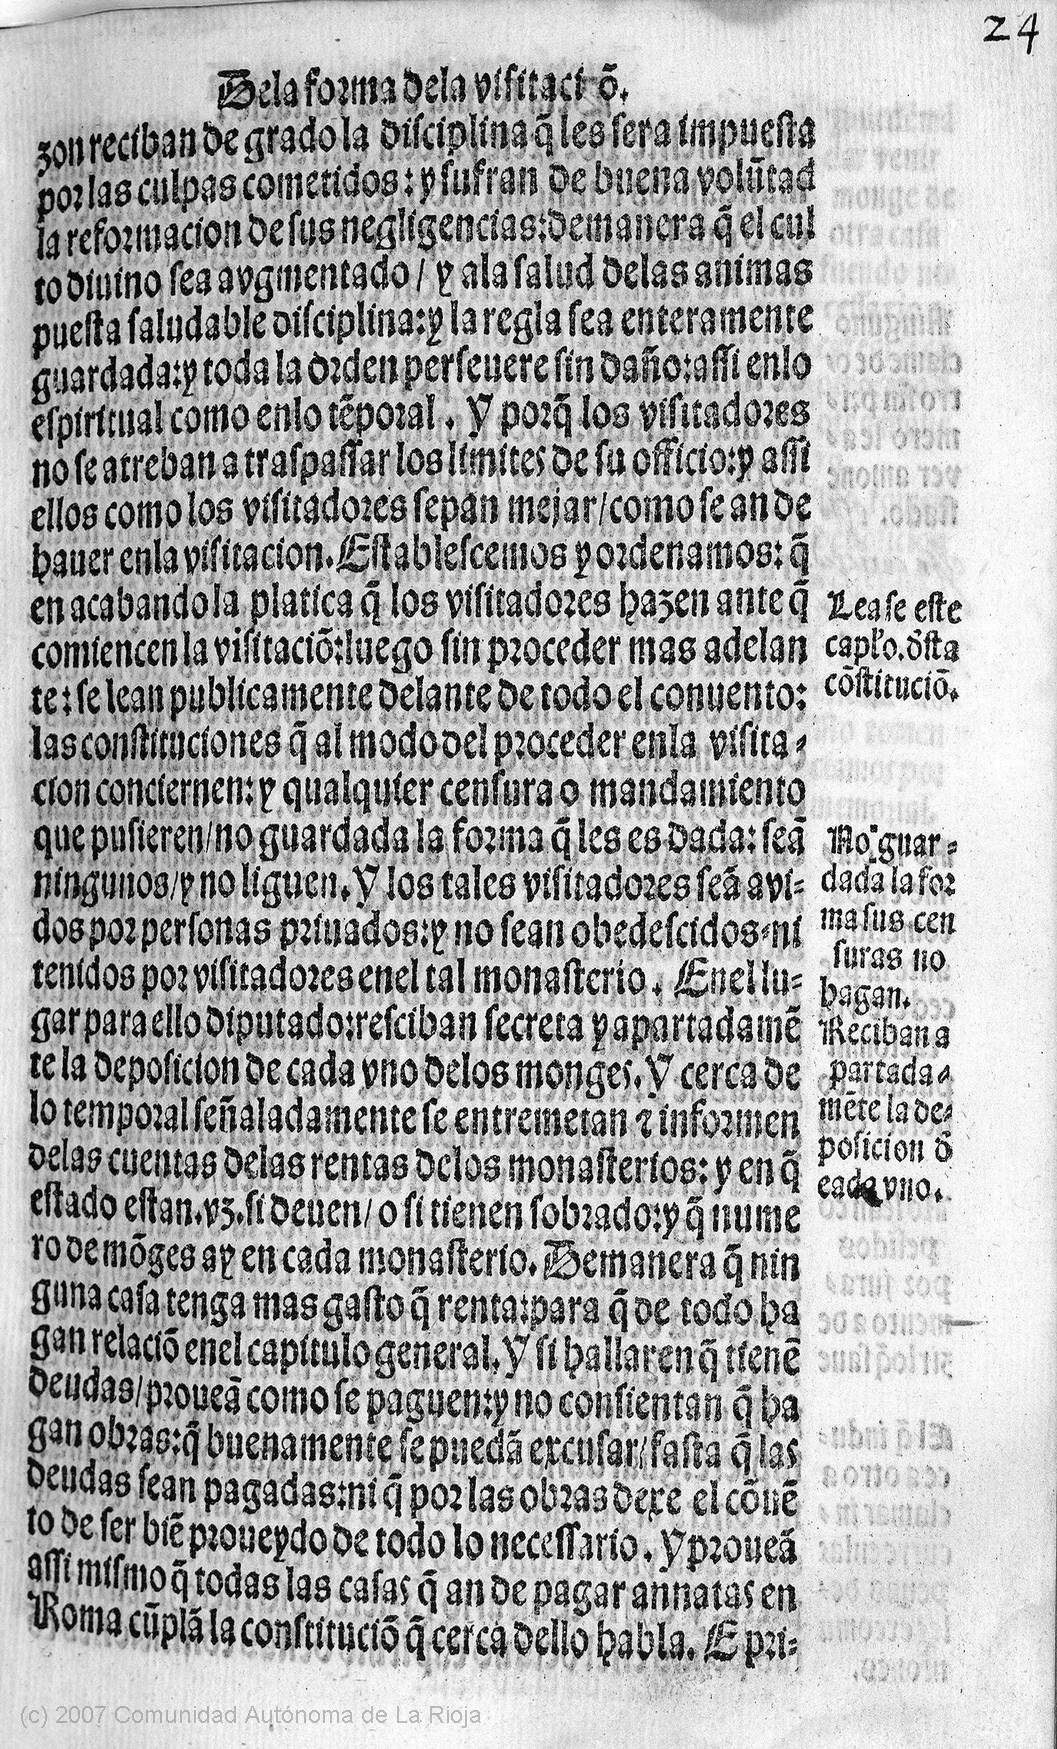 24
De la forma de la visitaciõ.
zon reciban de grado la disciplina q̃ les sera impuesta
por las culpas cometidos: y sufran de buena volũtad
la reformacion de sus negligencias: de manera q̃ el cul
to diuino sea avgmentado / y ala salud delas animas
puesta saludable disciplina: y la regla sea enteramente
guardada: y toda la orden perseuere sin daño: assi enlo
espiritual como enlo tẽporal. Y porq̃ los visitadores
no se atreban a traspassar los limites de su officio: y assi
ellos como los visitadores sepan mejar / como se an de
hauer enla visitacion. Establescemos y ordenamos: q̃
en acabando la platica q̃ los visitadores hazen ante q̃
comiencen la visitaciõ: luego sin proceder mas adelan
te: se lean publicamente delante de todo el conuento:
las constituciones q̃ al modo del proceder enla visita-
cion conciernen: y qualquier censura o mandamiento
que pusieren / no guardada la forma q̃ les es dada: seã
ningunos / y no liguen. Y los tales visitadores seã avi-
dos por personas priuados: y no sean obedescidos-ni
tenidos por visitadores enel tal monasterio. Enel lu-
gar para ello diputado: resciban secreta y apartadamẽ
te la deposicion de cada vno delos monges. Y cerca de
lo temporal señaladamente se entremetan ⁊ informen
delas cuentas delas rentas delos monasterios: y en q̃
estado estan. vz. si deuen / o si tienen sobrado: y q̃ nume
ro de mõges ay en cada monasterio. De manera q̃ nin
guna casa tenga mas gasto q̃ renta: para q̃ de todo ha
gan relaciõ enel capitulo general. Y si hallaren q̃ tienẽ
deudas / proueã como se paguen: y no consientan q̃ ha
gan obras: q̃ buenamente se puedã excusar / fasta q̃ las
deudas sean pagadas: ni q̃ por las obras dexe el cõuẽ
to de ser biẽ proueydo de todo lo necessario. Y proueã
assi mismo q̃ todas las casas q̃ an de pagar annatas en
Roma cũplã la constituciõ q̃ cerca dello habla. E pri-
Lea se este
capło. d̃sta
cõstituciõ.
No guar-
dada la for
ma sus cen
suras no
hagan.
Reciban a
partada-
mẽte la de-
posicion d̃
cada vno.
(c) 2007 Comunidad Autónoma de La Rioja